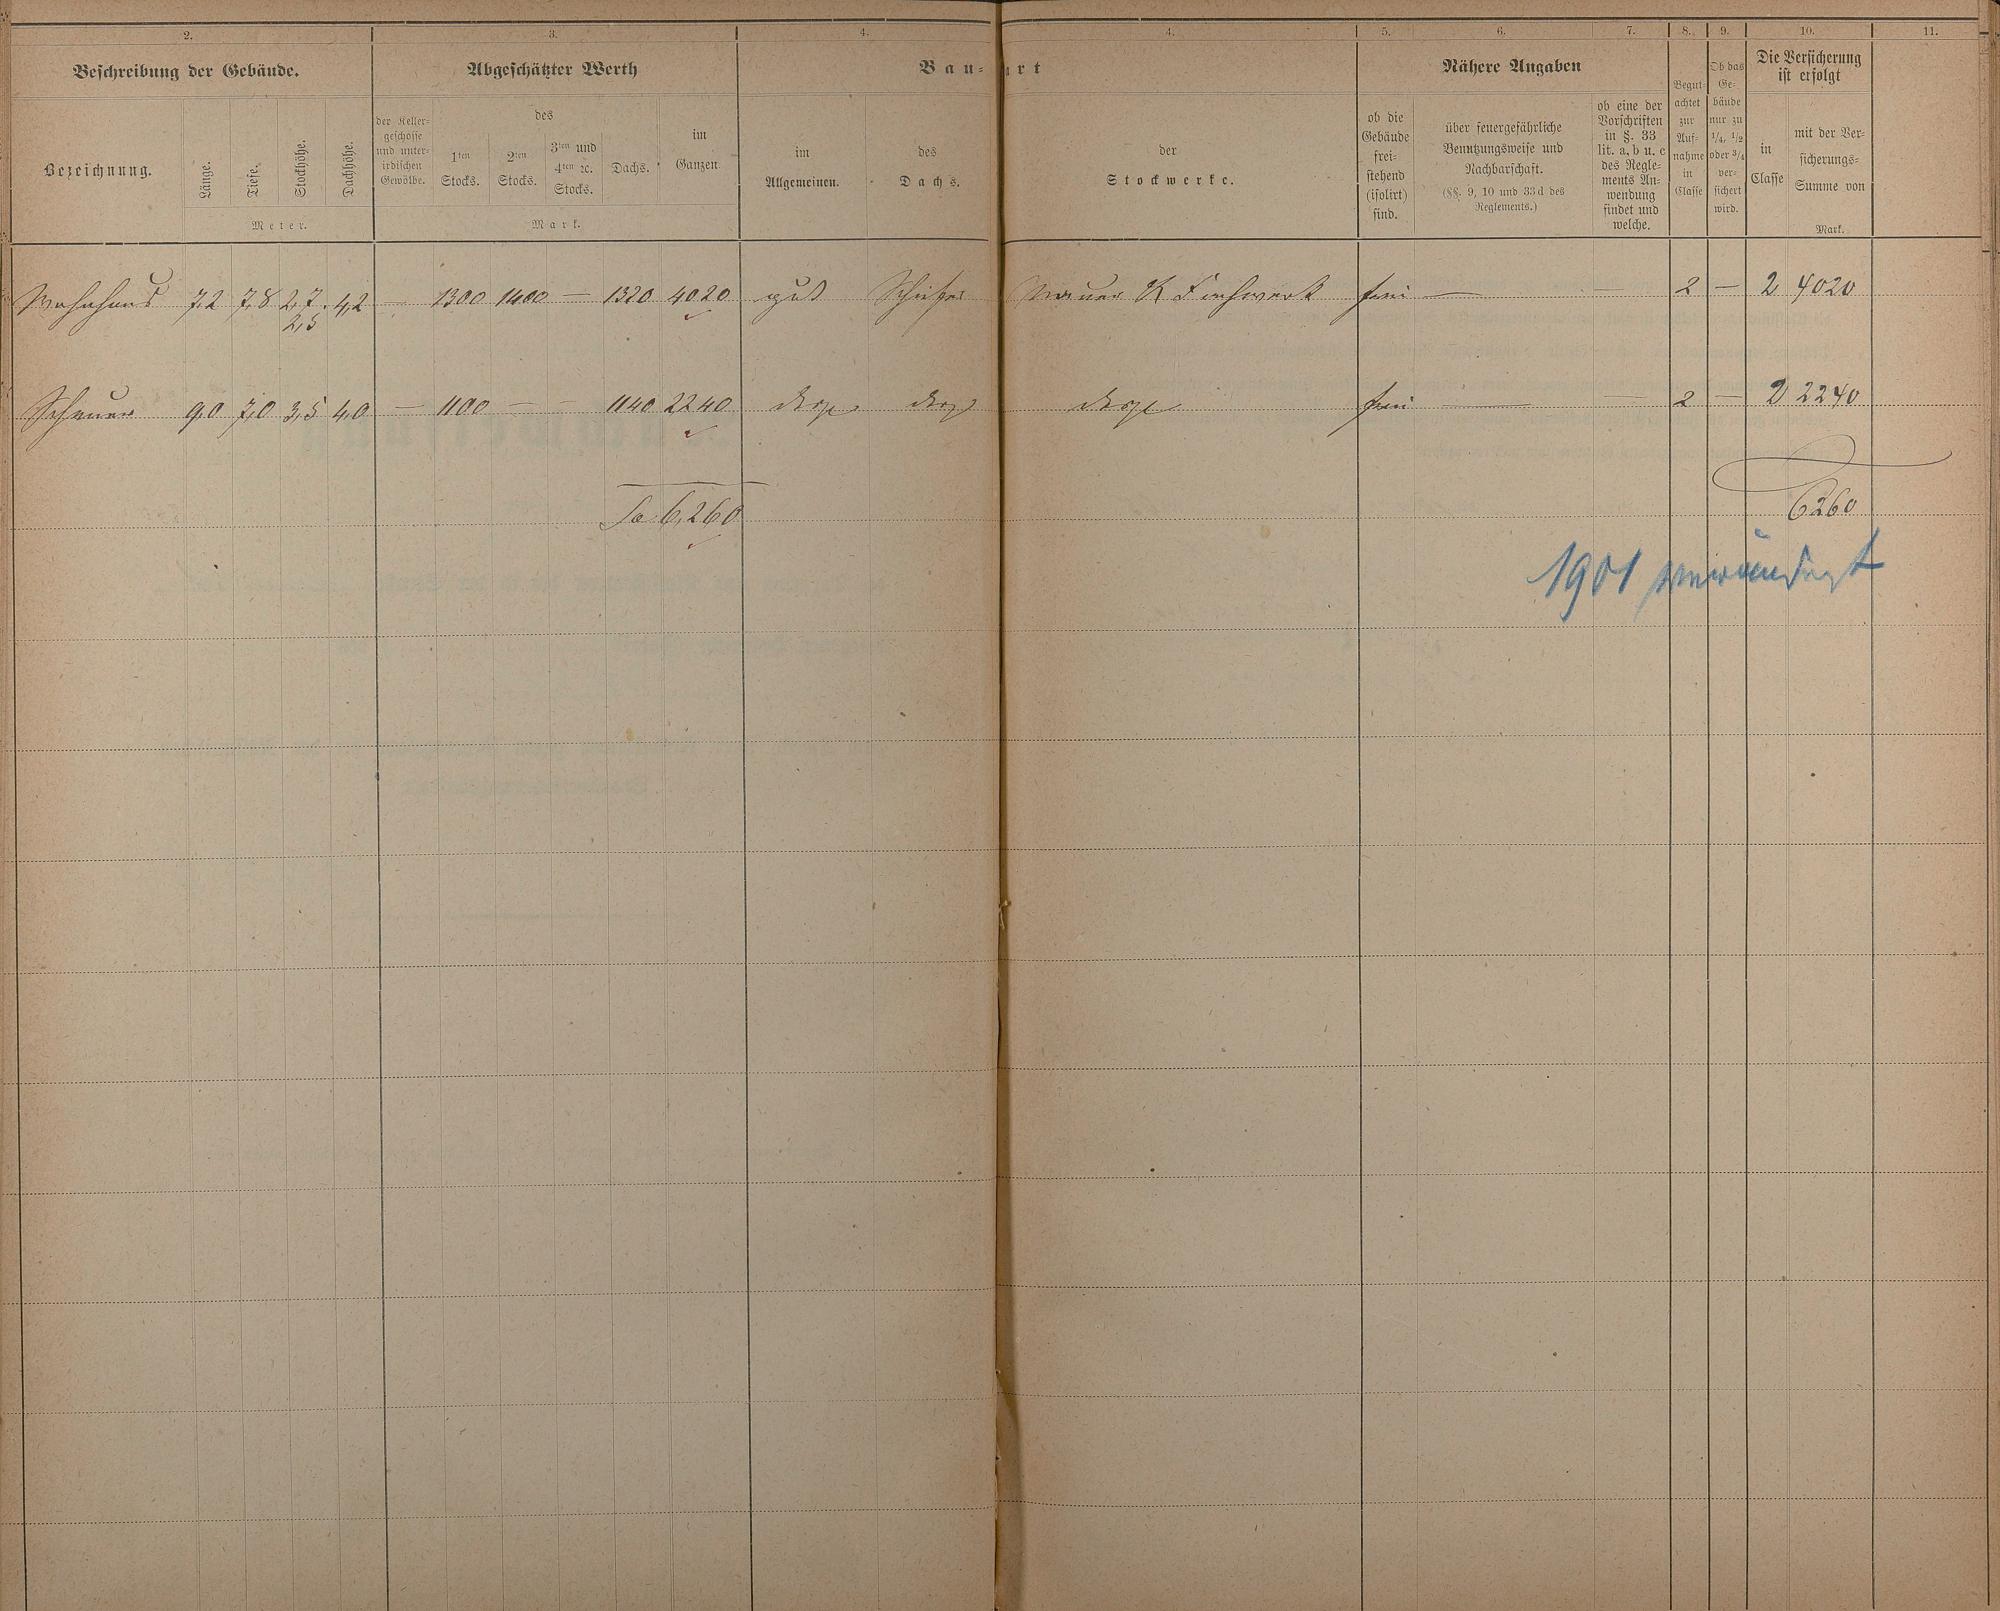 2. 3. 4. 4. 5. 6. 7. 8. 9. 10. 11.
Beschreibung der Gebäude. Abgeschätzter Werth Bau-art Nähere Angaben
Bezeichnung.
Länge.
Tiefe.
Stockhöhe.
Dachhöhe.
Meter.
der Keller-
geschosse
und unter-
irdischen
Gewölbe.
des
1ten
Stocks.
2ten
Stocks.
3ten und
4ten ꝛc.
Stocks.
Dachs.
im
Ganzen.
Mark.
im
Allgemeinen.
des
Dachs.
der
Stockwerke.
ob die
Gebäude
frei-
stehend
(isolirt)
sind.
über feuergefährliche
Benutzungsweise und
Nachbarschaft.
(§§. 9, 10 und 33 d des
Reglements.)
ob eine der
Vorschriften
in §. 33
lit. a, b u. c
des Regle-
ments An-
wendung
findet und
welche.
Begut-
achtet
zur
Auf-
nahme
in
Classe
Ob das
Ge-
bäude
nur zu
1/4, 1/2
oder 3/4
ver-
sichert
wird.
Die Versicherung
ist erfolgt
in
Classe
mit der Ver-
sicherungs-
Summe von
Mark.
Wohnhaus 7,2 7,8 2,7 4,2 — 1300 1400 — 1320 4020 gut Schiefer Mauer & Fachwerk frei — — 2 — 2 4020
2,5
Scheuer 9,0 7,0 3,5 4,0 — 1100 — — 1140 2240 desgl desgl desgl frei — — 2 — 2 2240
Sa 6,260 6260
1901 verändert